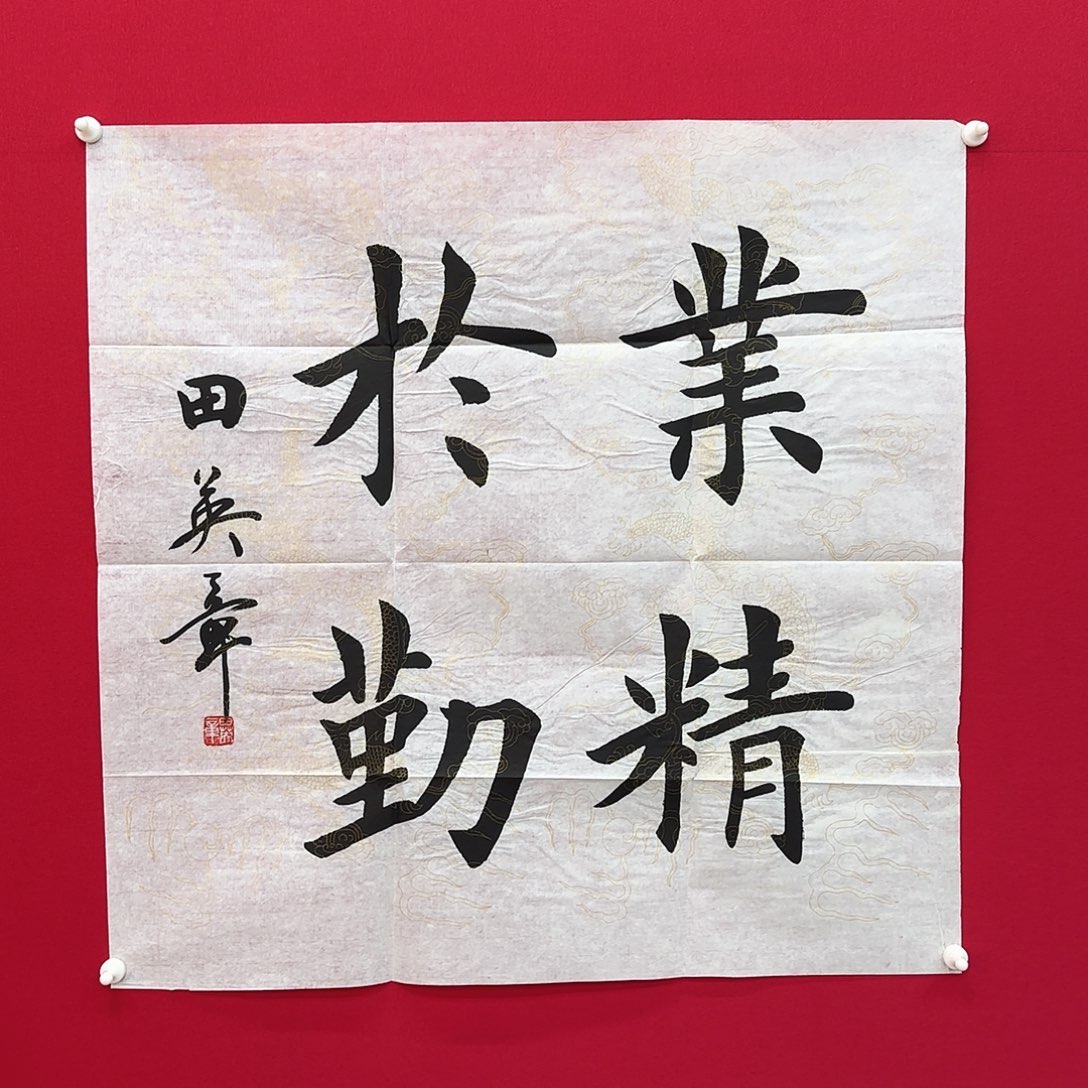 業精
於勤
田英章